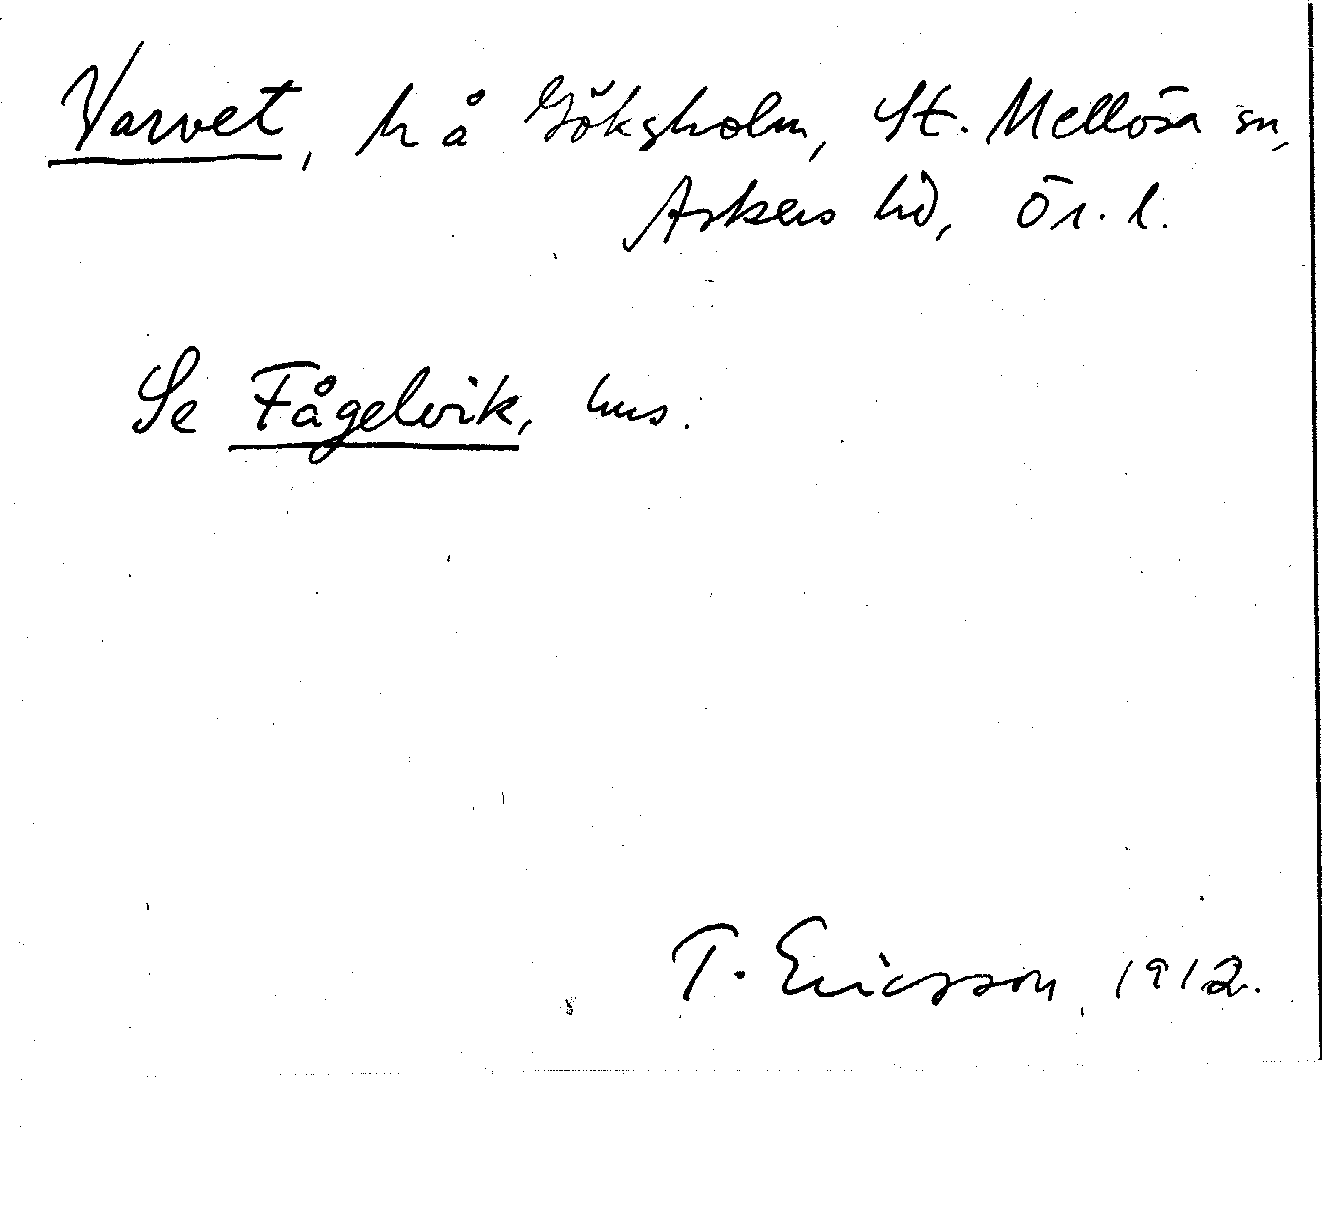 Varvet, h å Göksholm, St. Mellösa sn,
Askers hd, Ör. l.
Se Fågelvik, hus.
T. Ericsson, 1912.